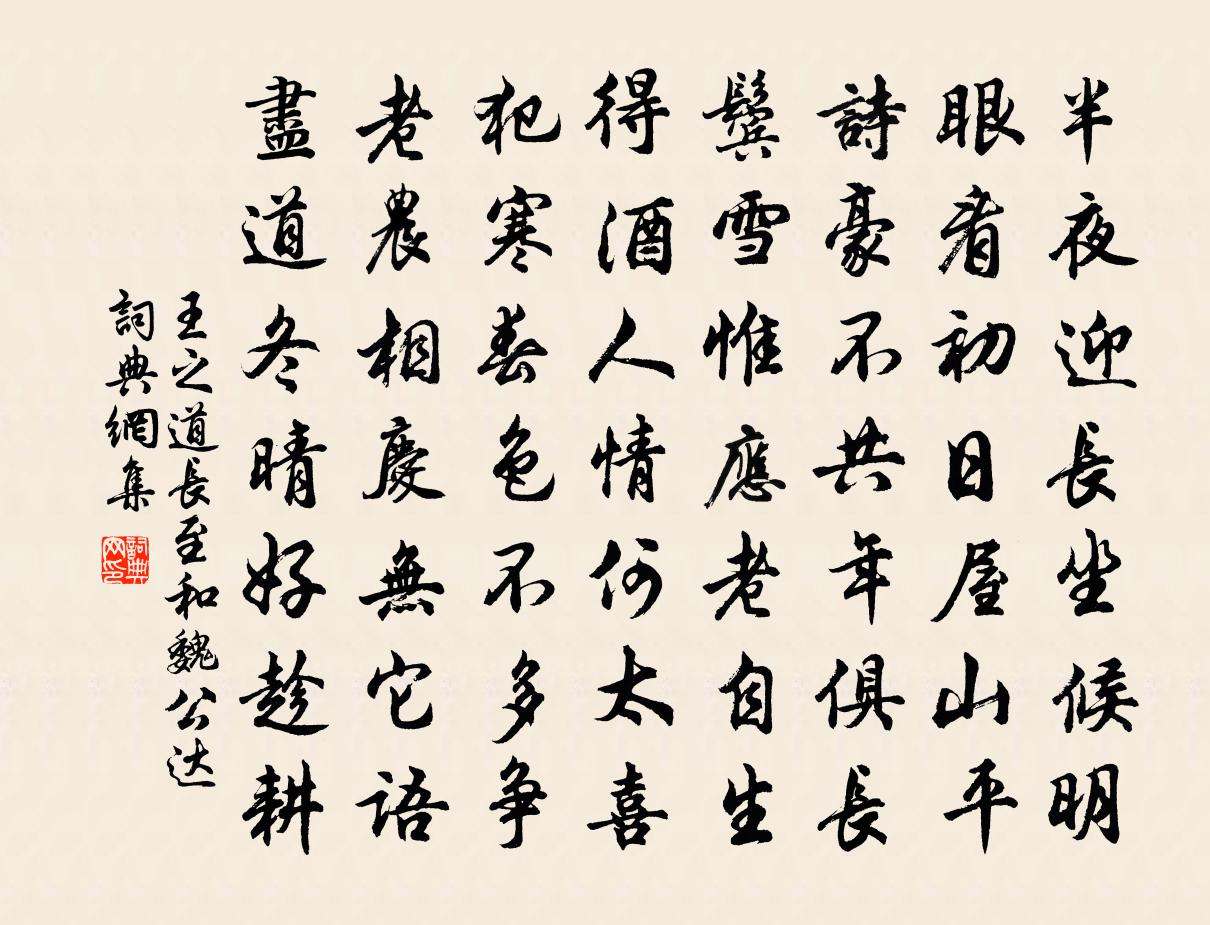 半夜迎長坐候明
眼看初日屋山平
詩豪不共年俱長
鬢雪惟應老自生
得酒人情何太喜
犯寒春色不多爭
老農相慶無它語
盡道冬晴好趁耕
王之道長至和魏公达
詞典網集
詞典網印